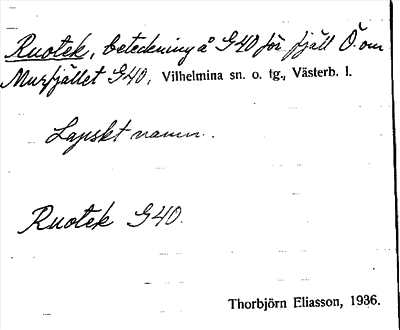 Ruotek, beteckning å G40 för fjäll Ö. om
Murfjället G40, Vilhelmina sn. o. tg., Västerb. l.
Lapskt namn.
Ruotek G40.
Thorbjörn Eliasson, 1936.